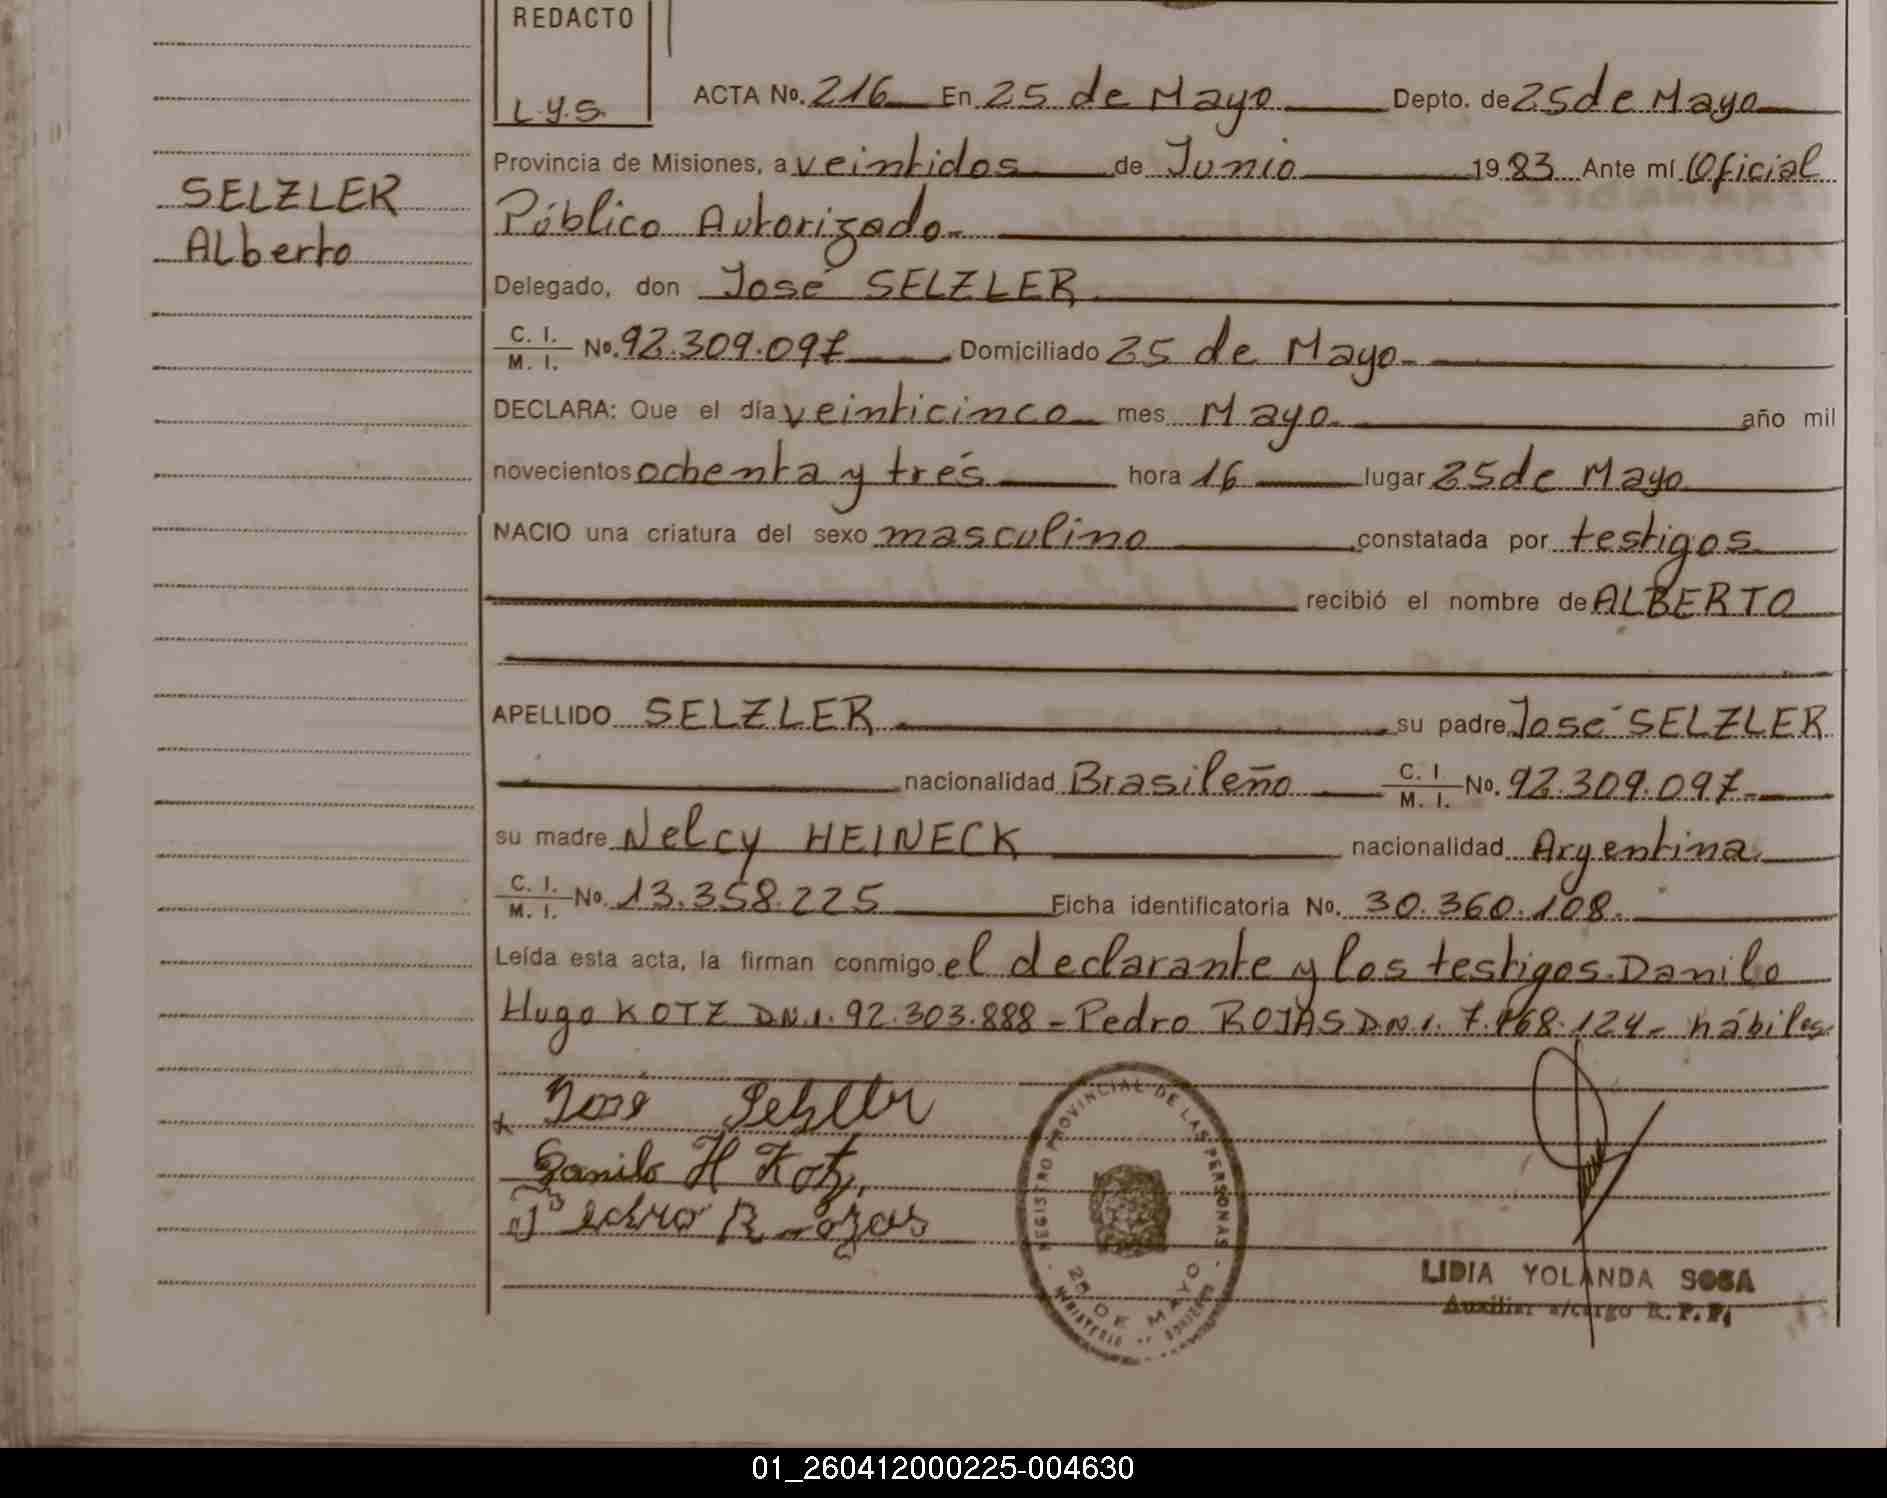 REDACTO
L.y.S.
ACTA No. 216 En 25 de Mayo Depto. de 25 de Mayo
Provincia de Misiones, a veintidos de Junio 1983 Ante mí Oficial
SELZLER
Alberto
Público Autorizado
Delegado, don José SELZLER
C. I. / M. I. No. 92.309.097 Domiciliado 25 de Mayo
DECLARA: Que el día veinticinco mes Mayo año mil
novecientos ochenta y trés hora 16 lugar 25 de Mayo
NACIO una criatura del sexo masculino constatada por testigos
recibió el nombre de ALBERTO
APELLIDO SELZLER su padre José SELZLER
nacionalidad Brasileño C. I. / M. I. No. 92.309.097
su madre Nelcy HEINECK nacionalidad Argentina
C. I. / M. I. No. 13.358.225 Ficha identificatoria No. 30.360.108.
Leída esta acta, la firman conmigo el declarante y los testigos. Danilo
Hugo KOTZ D.N.I. 92.303.888 - Pedro ROJAS D.N.I. - hábiles
José Selzler
Danilo H Kotz,
Pedro Rojas
REGISTRO PROVINCIAL DE LAS PERSONAS
25 DE MAYO
LIDIA YOLANDA SOSA
Auxiliar a/cargo R.P.P.
01_260412000225-004630